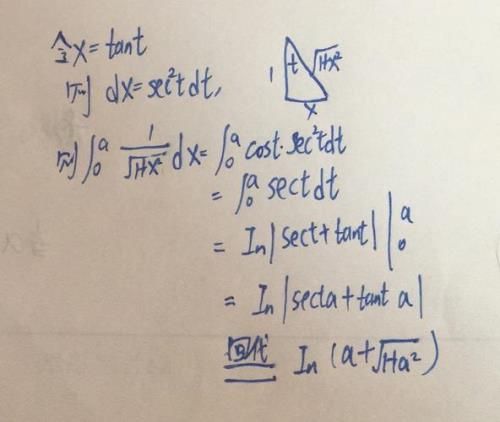 令x=tant
则 dx=sec²tdt,
1 t √1+x² x
则∫₀ᵃ 1/√1+x² dx=∫₀ᵃ cost·sec²tdt
=∫₀ᵃ sectdt
=In|sect+tant| |₀ᵃ
=In|secta+tant a|
回代 In(a+√1+a²)